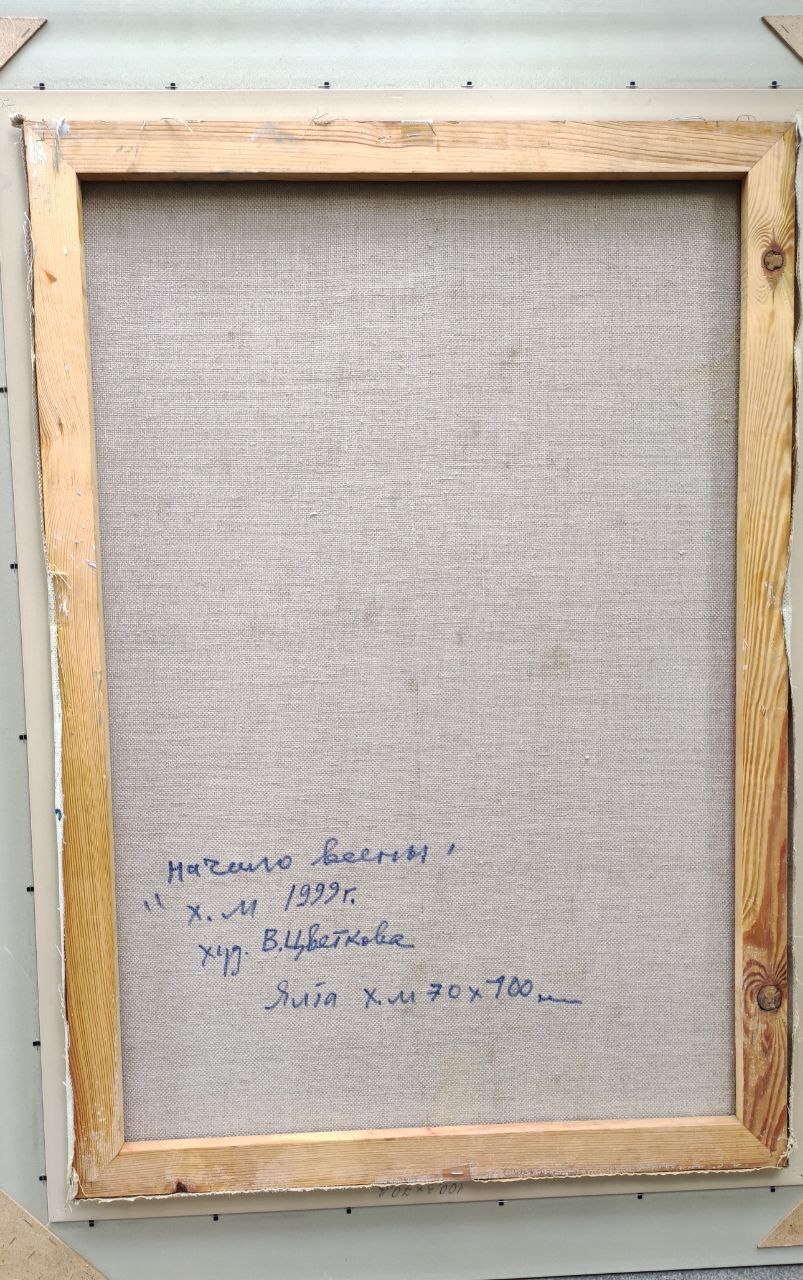 начало весны"
" х.м 1999г.
худ. В.Цветкова
Ялта х.м 70х100